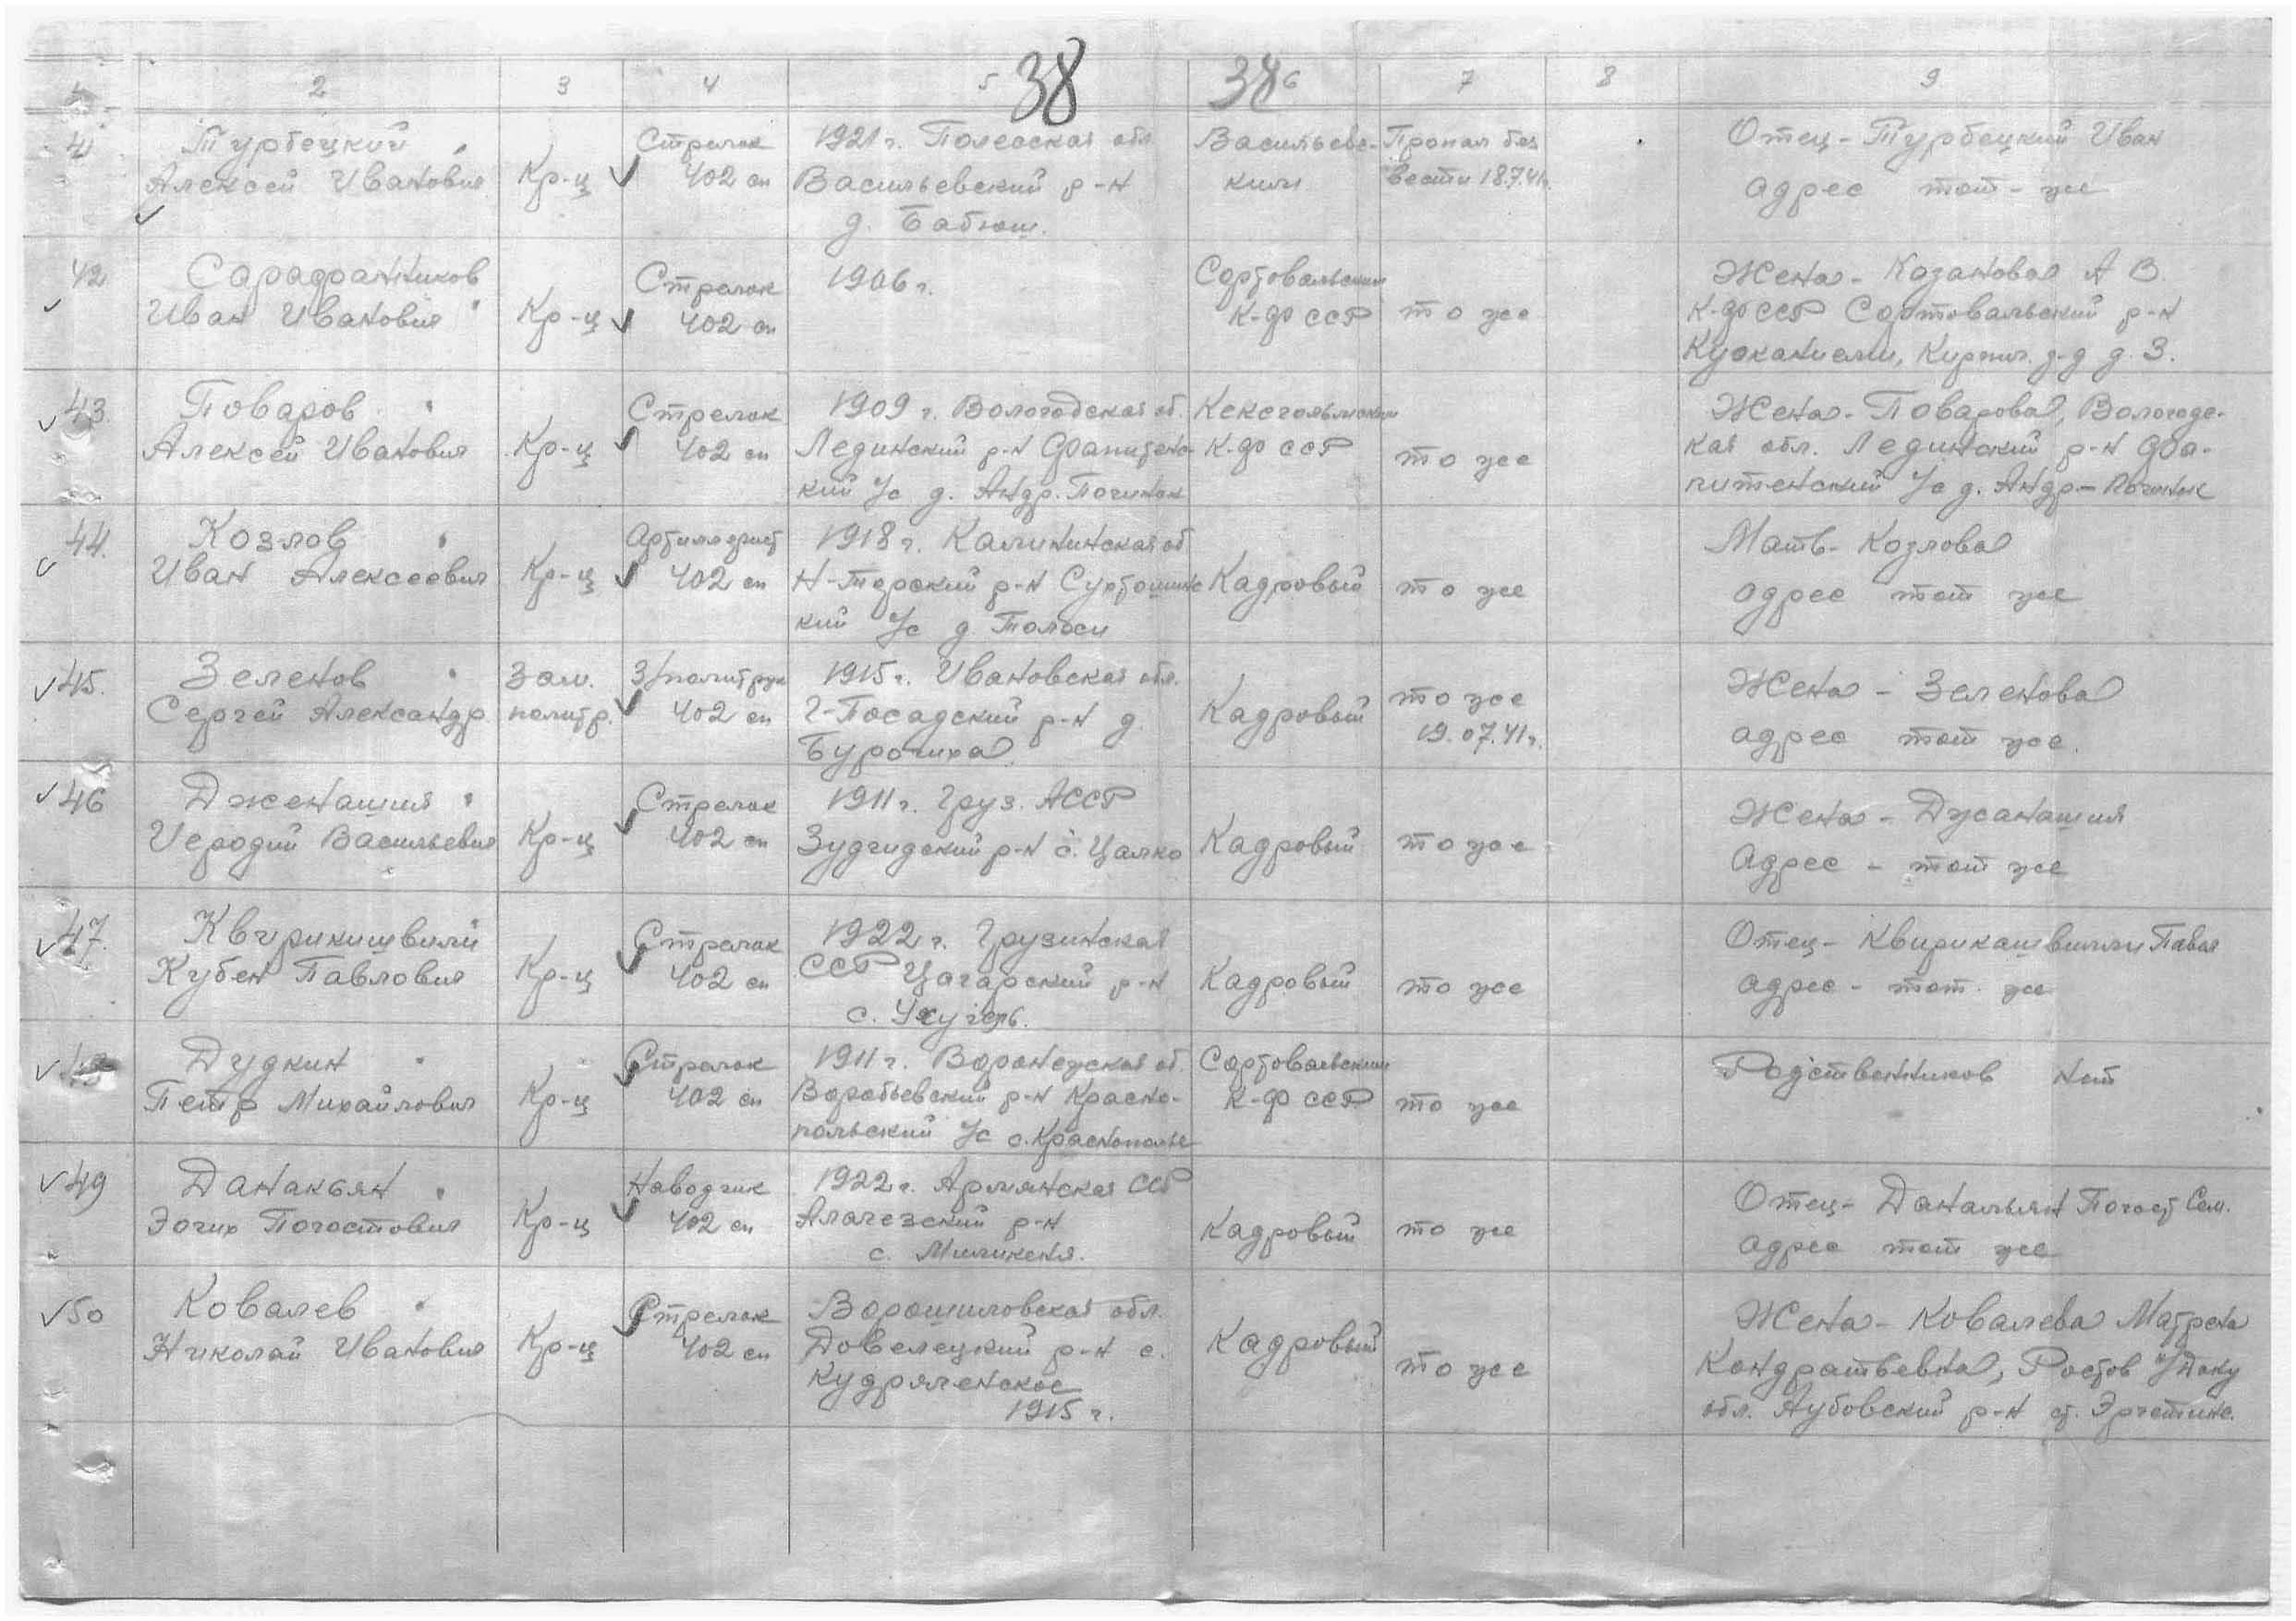 38 38
2 3 4 5 6 7 8 9
41 Турбецкий Стрелок 1921 г. Полесская обл Васильевс- Пропал без Отец - Турбецкий Иван
Алексей Иванович Кр-ц 402 сп Васильевский р-н ким вести 18.7.41г. адрес тот-же
д. Бабюш.
42 Сарафанников Стрелок 1906 г. Сортовальским Жена - Казановоа А В.
Иван Иванович Кр-ц 402 сп К-ф ССР то же К-ф ССР Сортовальский р-н
Куоканиеми, Кирпич. з-д д. 3.
43. Поваров Стрелок 1909 г. Вологодская об. Кексгольмским Жена - Поварова, Вологодс-
Алексей Иванович Кр-ц 402 сп Лединский р-н К-ф ССР то же кая обл. Лединский р-н
кий /с д. Андр. Починок /с д. Андр-Починок
44. Козлов Артиллерист 1918 г. Калининская об Мать - Козлова
Иван Алексеевич Кр-ц 402 сп Н-Торский р-н Суртошинс Кадровый то же адрес тот же
кий /с д Полоси
45. Зеленов зам. З/политрук 1915 г. Ивановская обл. то же Жена - Зеленова
Сергей Александр. политр. 402 сп Г-Посадский р-н д. Кадровый 19.07.41г. адрес тот же.
Бурочиха
46 Дженашия Стрелок 1911 г. Груз. АССР Жена - Дусанашия
Иеродий Васильевич Кр-ц 402 сп Зудгидский р-н с. Цалко Кадровый то же Адрес - тот же
47. Квирикишвили Стрелок 1922 г. Грузинская Отец - Квирикашвилли Павел
Кубен Павлович Кр-ц 402 сп ССР Цагарский р-н Кадровый то же адрес - тот же
с.
48 Дудкин Стрелок 1911 г. Воронежская об. Сортовальским Родственников нет
Петр Михайлович Кр-ц 402 сп Воробьевский р-н Красно- К-ф ССР то же
польский /с с. Краснополье
49 Данакьян Наводчик 1922 г. Армянская ССР Отец - Данальян Погост Сем.
Эогих Погостович Кр-ц 402 сп Алагезский р-н Кадровый то же адрес тот же
с. Миликеня.
50 Ковалев Стрелок Ворошиловская обл. Жена - Ковалева Матрена
Николай Иванович Кр-ц 402 сп Довелецкий р-н с. Кадровый то же Кондратьевна, Ростов н/Дону
Кудряленское обл. Аубовский р-н ст.
1915 г.